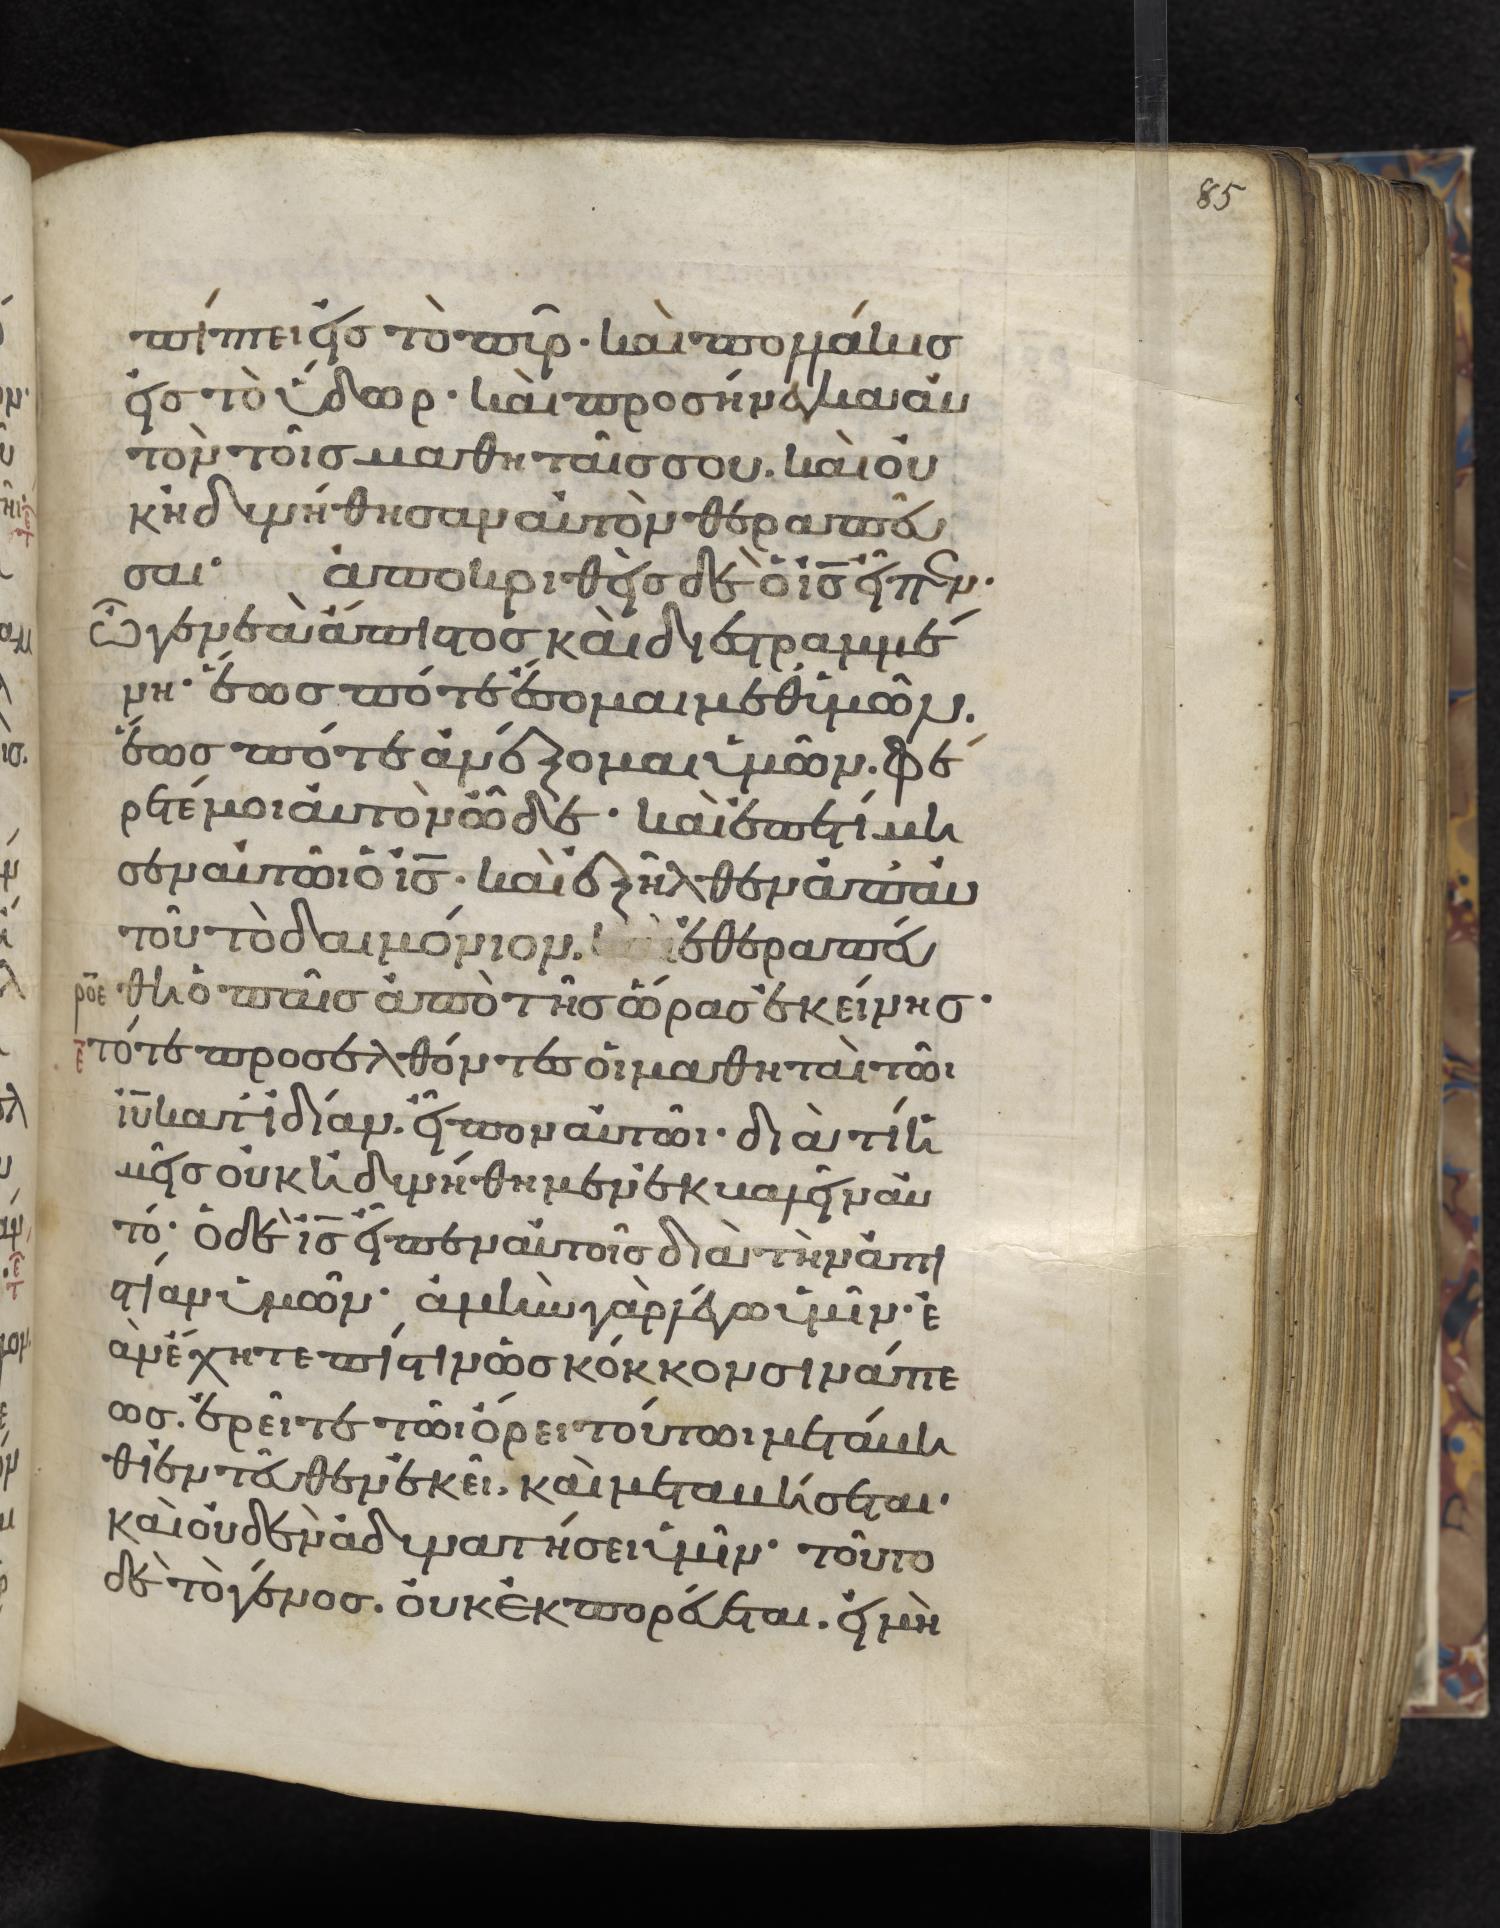 85
πίπτει εἰς τὸ πῦρ· καὶ πολλάκις
εἰς τὸ ὕδωρ· καὶ προσήνεγκα αὐ
τὸν τοῖς μαθηταῖς σου. καὶ οὐ
κ ἠδυνήθησαν αὐτὸν θεραπεῦ
σαι· ἀποκριθεὶς δὲ ὁ ἰς εἶπεν·
ὦ γενεὰ ἄπιστος καὶ διεστραμμέ
νη· ἕως πότε ἔσομαι μεθ ὑμῶν.
ἕως πότε ἀνέξομαι ὑμῶν. φέ
ρετέ μοι αὐτὸν ὧδε· καὶ ἐπετίμη
σεν αὐτῶι ὁ ἰς· καὶ ἐξῆλθεν ἀπ αὐ
τοῦ τὸ δαιμόνιον. καὶ ἐθεραπεύ
ροε θη ὁ παῖς ἀπὸ τῆς ὥρας ἐκείνης·
τότε προσελθόντες οἱ μαθηταὶ τῶι
ιυ κατ ἰδίαν. εἶπον αὐτῶι· διὰ τί ἡ
μεῖς οὐκ ἠδυνήθημεν ἐκβαλεῖν αὐ
τό· ὁ δὲ ἰς εἶπεν αὐτοῖς διὰ τὴν ἀπι
στίαν ὑμῶν· ἀμὴν γὰρ λέγω ὑμῖν· ἐ
ὰν ἔχητε πίστιν ὡς κόκκον σινάπε
ως. ἐρεῖτε τῶι ὄρει τούτωι μετάβη
θι ἐντεῦθεν ἐκεῖ. καὶ μεταβήσεται·
καὶ οὐδὲν ἀδυνατήσει ὑμῖν· τοῦτο
δὲ τὸ γένος. οὐκ ἐκπορεύεται. εἰ μὴ